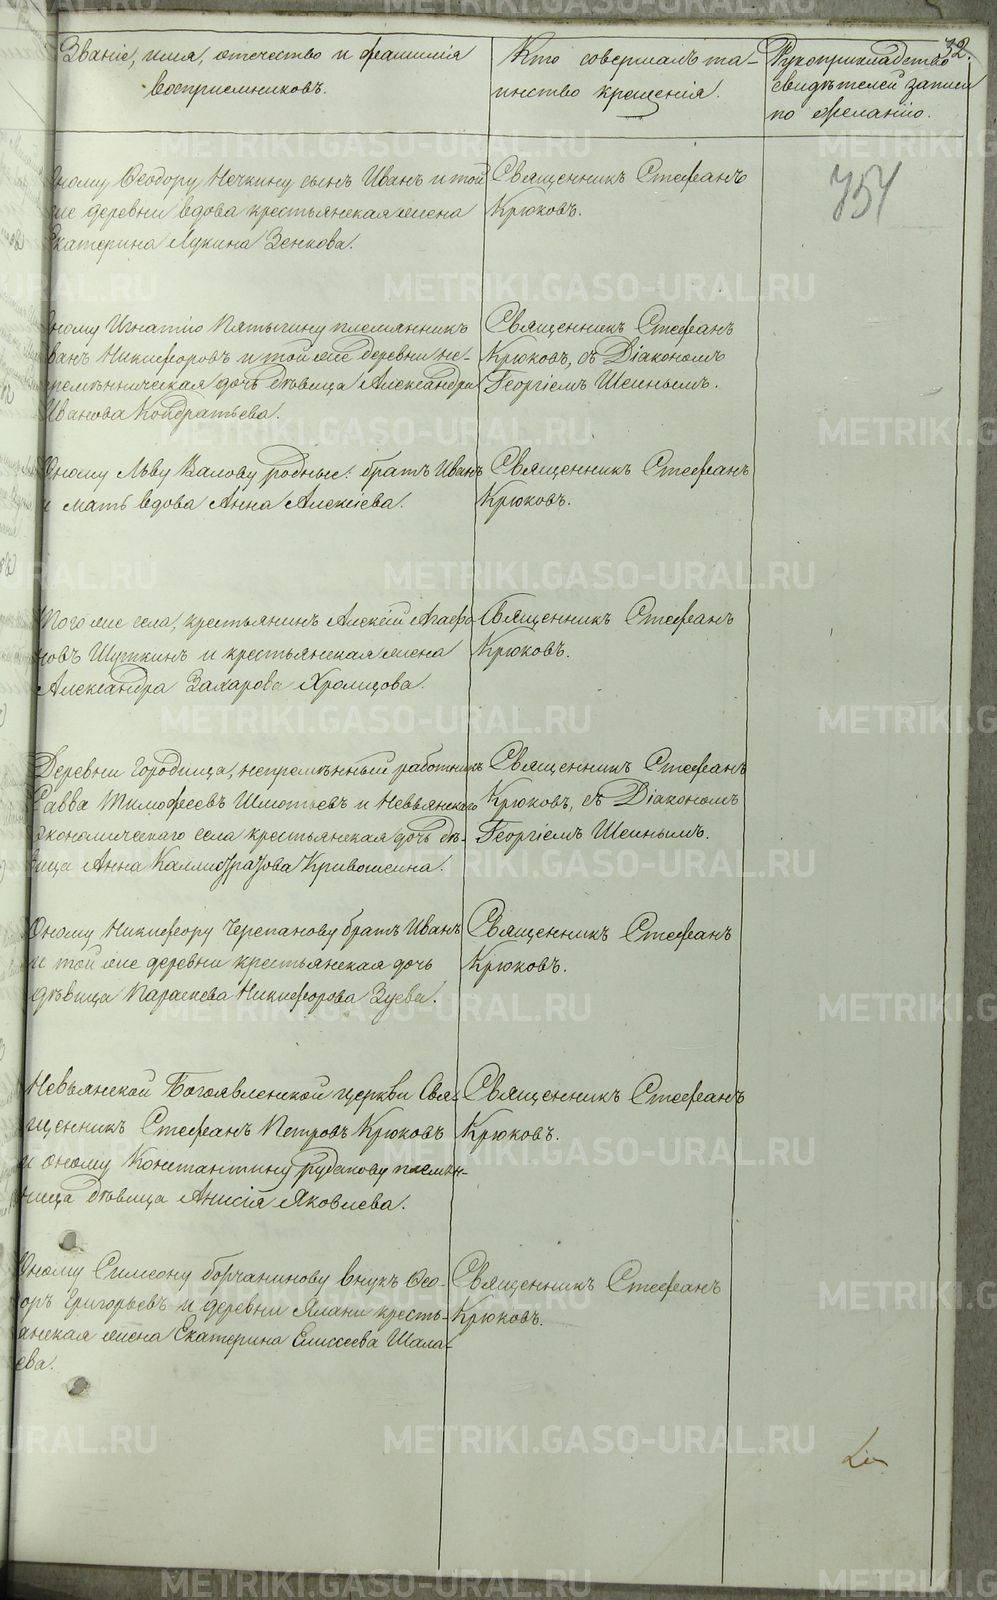 32.
Званіе, имя, отечество и фамилія
воспріемниковъ.
Кто совершалъ та-
инство крещенія.
Рукоприкладство
свидѣтелей записи
по желанію.
754
Оному Ѳеодору Нечкину сынъ Иванъ и той
же деревни вдова крестьянская жена
Екатерина Лукина Зенкова.
Священникъ Стефанъ
Крюковъ.
Оному Игнатію Пятыгину племянникъ
Иванъ Никифоровъ и той же деревни не-
премѣнническая дочь дѣвица Александра
Иванова Кондратьева.
Священникъ Стефанъ
Крюковъ, съ Діакономъ
Георгіемъ Шеинымъ.
Оному Льву Валову родные: братъ Иванъ
и мать вдова Анна Алексіева.
Священникъ Стефанъ
Крюковъ.
Того же села, крестьянинъ Алексій Агафо-
новъ Шуткинъ и крестьянская жена
Александра Захарова Хромцова.
Священникъ Стефанъ
Крюковъ.
Деревни Городища, непремѣнный работникъ
Савва Тимофеевъ Шмотьевъ и Невьянскаго
экономическаго села крестьянская дочь дѣ-
вица Анна Каллистратова Кривошеина.
Священникъ Стефанъ
Крюковъ, съ Діакономъ
Георгіемъ Шеинымъ.
Оному Никифору Черепанову братъ Иванъ
и той же деревни крестьянская дочь
дѣвица Параскева Никифорова Зуева.
Священникъ Стефанъ
Крюковъ.
Невьянской Богоявленской церкви Свя-
щенникъ Стефанъ Петровъ Крюковъ
и оному Константину Рудакову племян-
ница дѣвица Анисія Яковлева.
Священникъ Стефанъ
Крюковъ.
Оному Симеону Борчанинову внукъ Ѳео-
доръ Григорьевъ и деревни Ялани кресть-
янская жена Екатерина Елисеева Шала-
ева.
Священникъ Стефанъ
Крюковъ.
METRIKI.GASO-URAL.RU